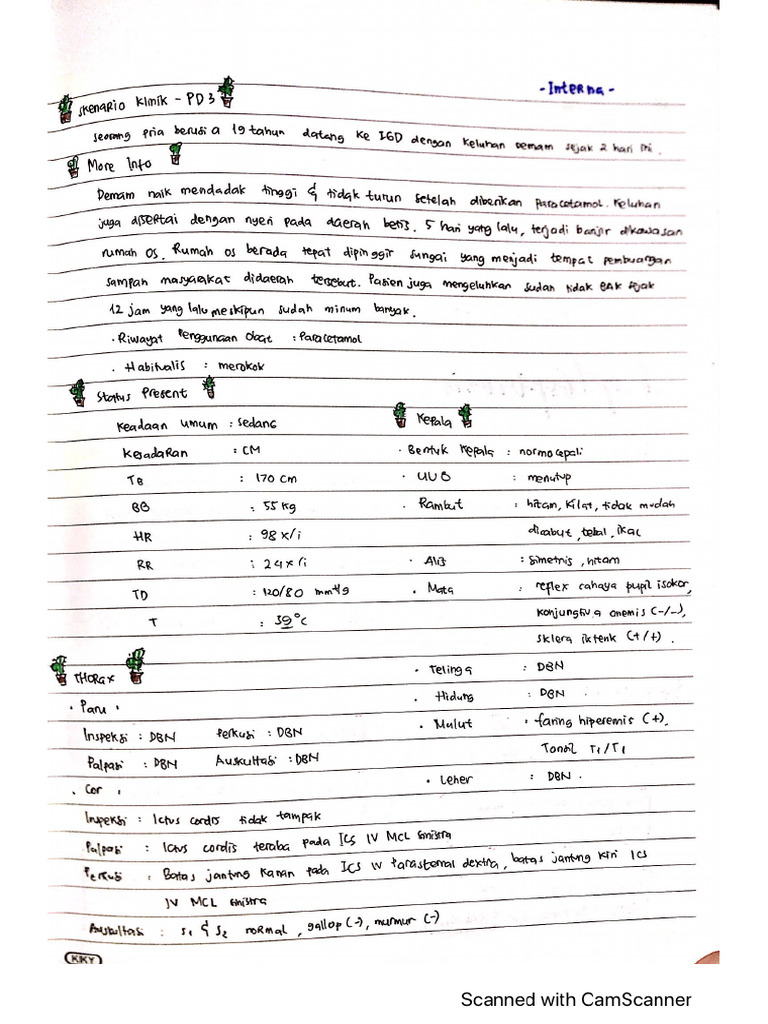 - Interna -
Skenario Klinik - PD 3
Seorang pria berusia 19 tahun datang ke IGD dengan keluhan demam sejak 2 hari ini.
More Info
Demam naik mendadak tinggi & tidak turun setelah diberikan paracetamol. Keluhan
juga disertai dengan nyeri pada daerah betis. 5 hari yang lalu, terjadi banjir dikawasan
rumah OS. Rumah OS berada tepat dipinggir sungai yang menjadi tempat pembuangan
sampah masyarakat didaerah tersebut. Pasien juga mengeluhkan sudah tidak BAK sejak
12 jam yang lalu meskipun sudah minum banyak.
· Riwayat Penggunaan Obat : Paracetamol
· Habitualis : merokok
Status Present
Keadaan umum : Sedang
Kesadaran : CM
TB : 170 cm
BB : 55 kg
HR : 98 x/i
RR : 24 x/i
TD : 120/80 mmHg
T : 39°C
Kepala
· Bentuk Kepala : normocepali
· UUB : menutup
· Rambut : hitam, kilat, tidak mudah
dicabut, tebal, ikal
· Alis : Simetris, hitam
· Mata : reflex cahaya pupil isokor,
konjungtiva anemis (-/-),
sklera ikterik (+/+).
· Telinga : DBN
· Hidung : DBN
· Mulut : faring hiperemis (+),
Tonsil T1/T1
· Leher : DBN.
Thorax
· Paru :
Inspeksi : DBN Perkusi : DBN
Palpasi : DBN Auskultasi : DBN
· Cor :
Inspeksi : Ictus cordis tidak tampak
Palpasi : Ictus cordis teraba pada ICS IV MCL sinistra
Perkusi : Batas jantung kanan pada ICS IV Parasternal dextra, batas jantung kiri ICS
IV MCL sinistra
Auskultasi : S1 & S2 normal, gallop (-), murmur (-)
KKY
Scanned with CamScanner